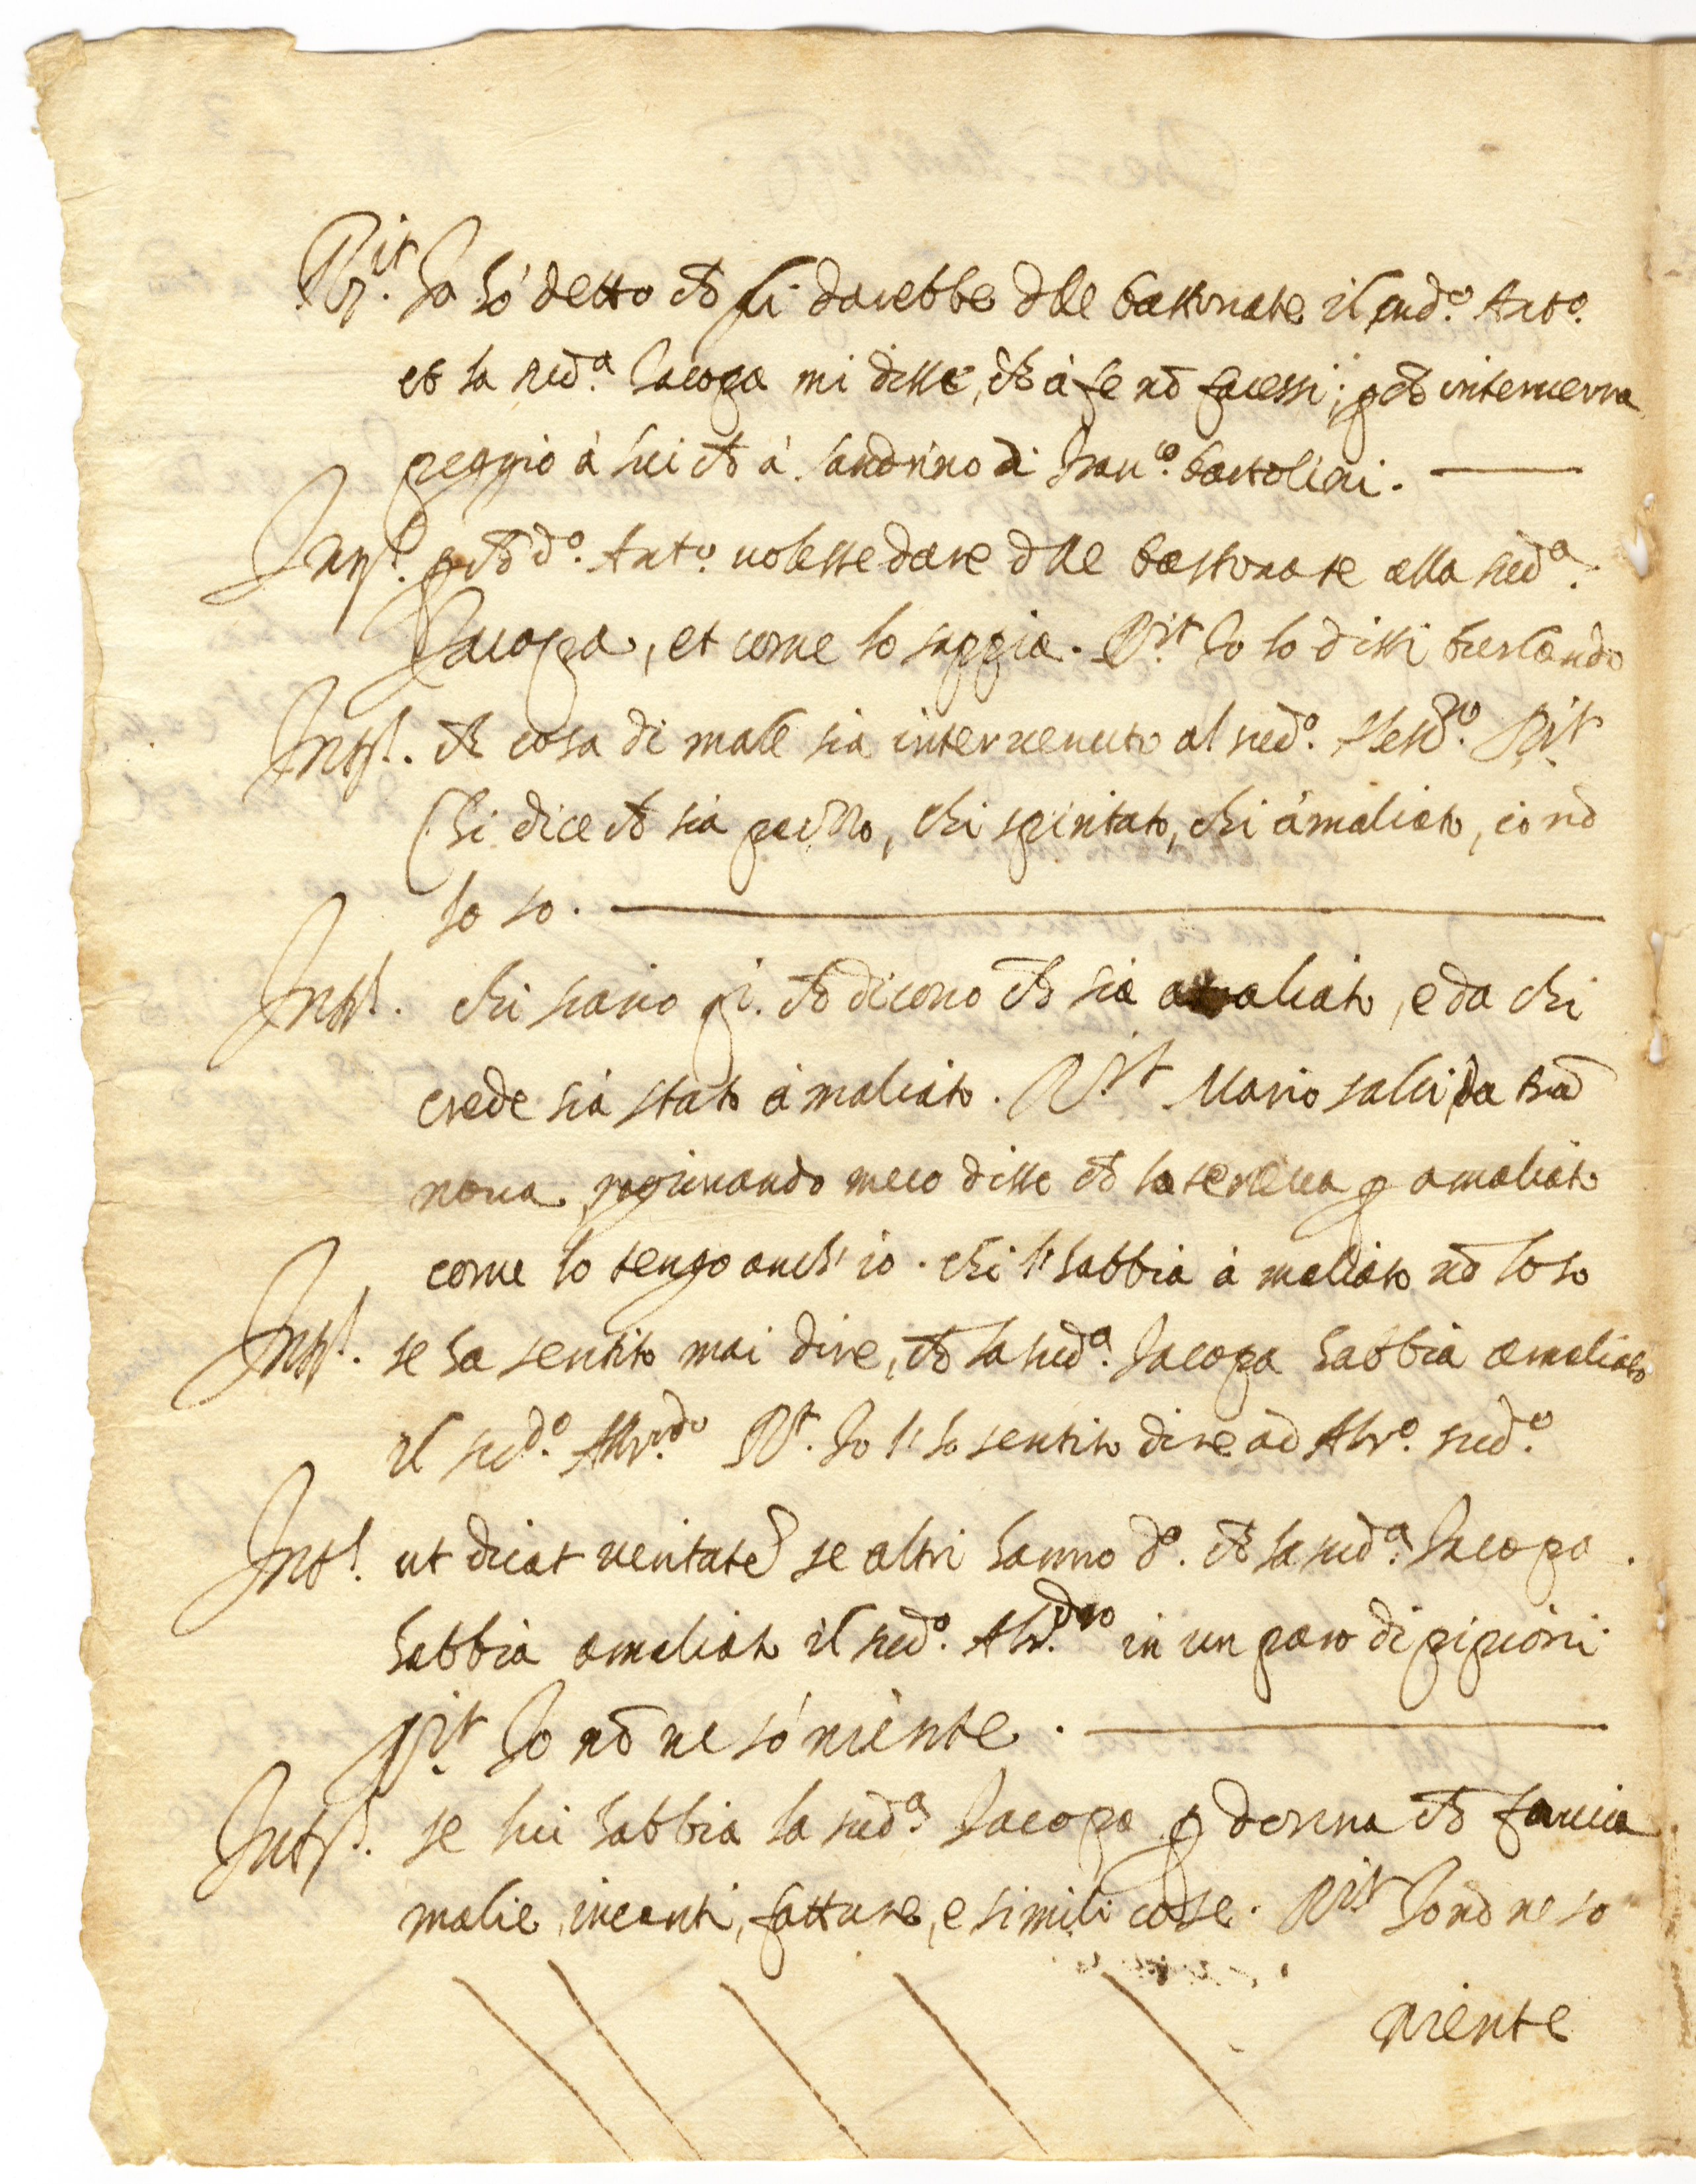 R.it Io hò detto ch li darebbe dlle bastonate il sud.o Ant.o
et la sud.a Iacopa mi disse, ch à se nō facessi; pch interverria
peggio à lui ch à sandrino di Fran.co bartolini.
Int. p ch d.o Ant.o volesse dare dlle bastonate alla sud.a
Iacopa, et come lo sappia. R.it Io lo dissi burlando
Int. ch cosa di male sia intervenuto al sud.o R.it
Chi dice ch sia pazzo, chi spiritato, chi amaliato, io nō
lo so.
Int. chi siano ch dicono ch sia amaliato, e da chi
crede sia stato amaliato. R.it Mario salvi da
nova ragionando meco disse ch lo teneva p amaliato
come lo tengo anch'io. chi l'habbia amaliato nō lo so
Int. se ha sentito mai dire, ch la sud.a Iacopa habbia amaliato
il sud.o R.t Io l'ho sentito dire ad sud.o
Int. ut dicat veritatē se altri hanno d.o ch la sud.a Iacopa
habbia amaliato il sud.o in un paro di pipioni
R.it Io nō ne sò niente.
Int. se lui habbia la sud.a Iacopa p donna ch faccia
malie, incanti, fatture, e simili cose. R.it Io nō ne so
niente